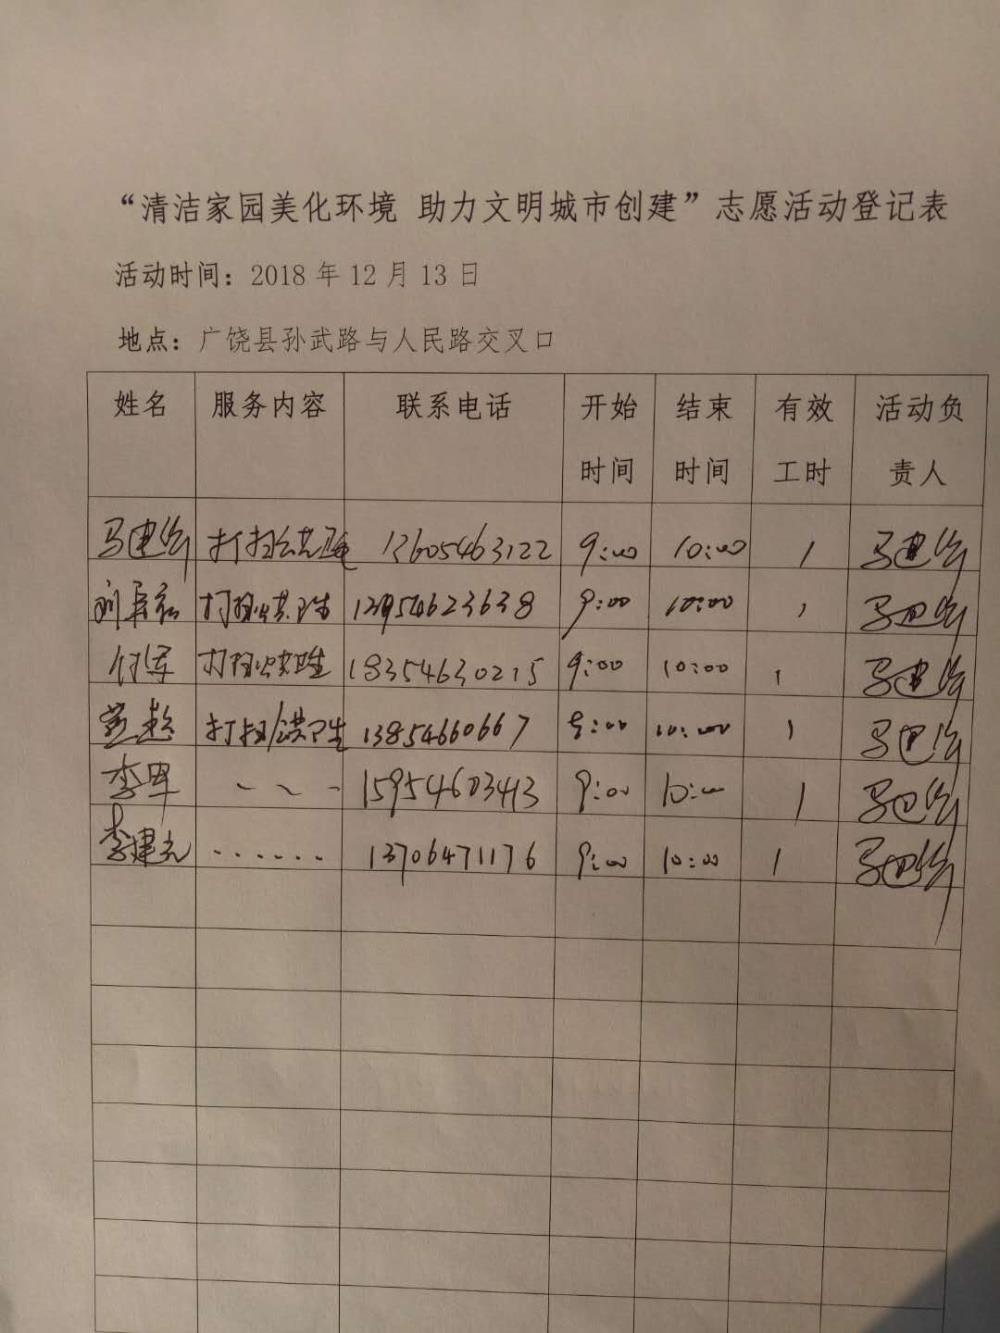 “清洁家园美化环境 助力文明城市创建”志愿活动登记表
活动时间：2018 年 12 月 13 日
地点：广饶县孙武路与人民路交叉口
姓名 服务内容 联系电话 开始时间 结束时间 有效工时 活动负责人
马建 打扫公共卫生 13605463122 9:00 10:00 1 马建
刘 打扫公共卫生 13954623638 9:00 10:00 1 马建
付军 打扫公共卫生 18354630215 9:00 10:00 1 马建
打扫公共卫生 13854660667 9:00 10:00 1 马建
李军 、、、 15954603413 9:00 10:00 1 马建
李建 ...... 13706471176 9:00 10:00 1 马建